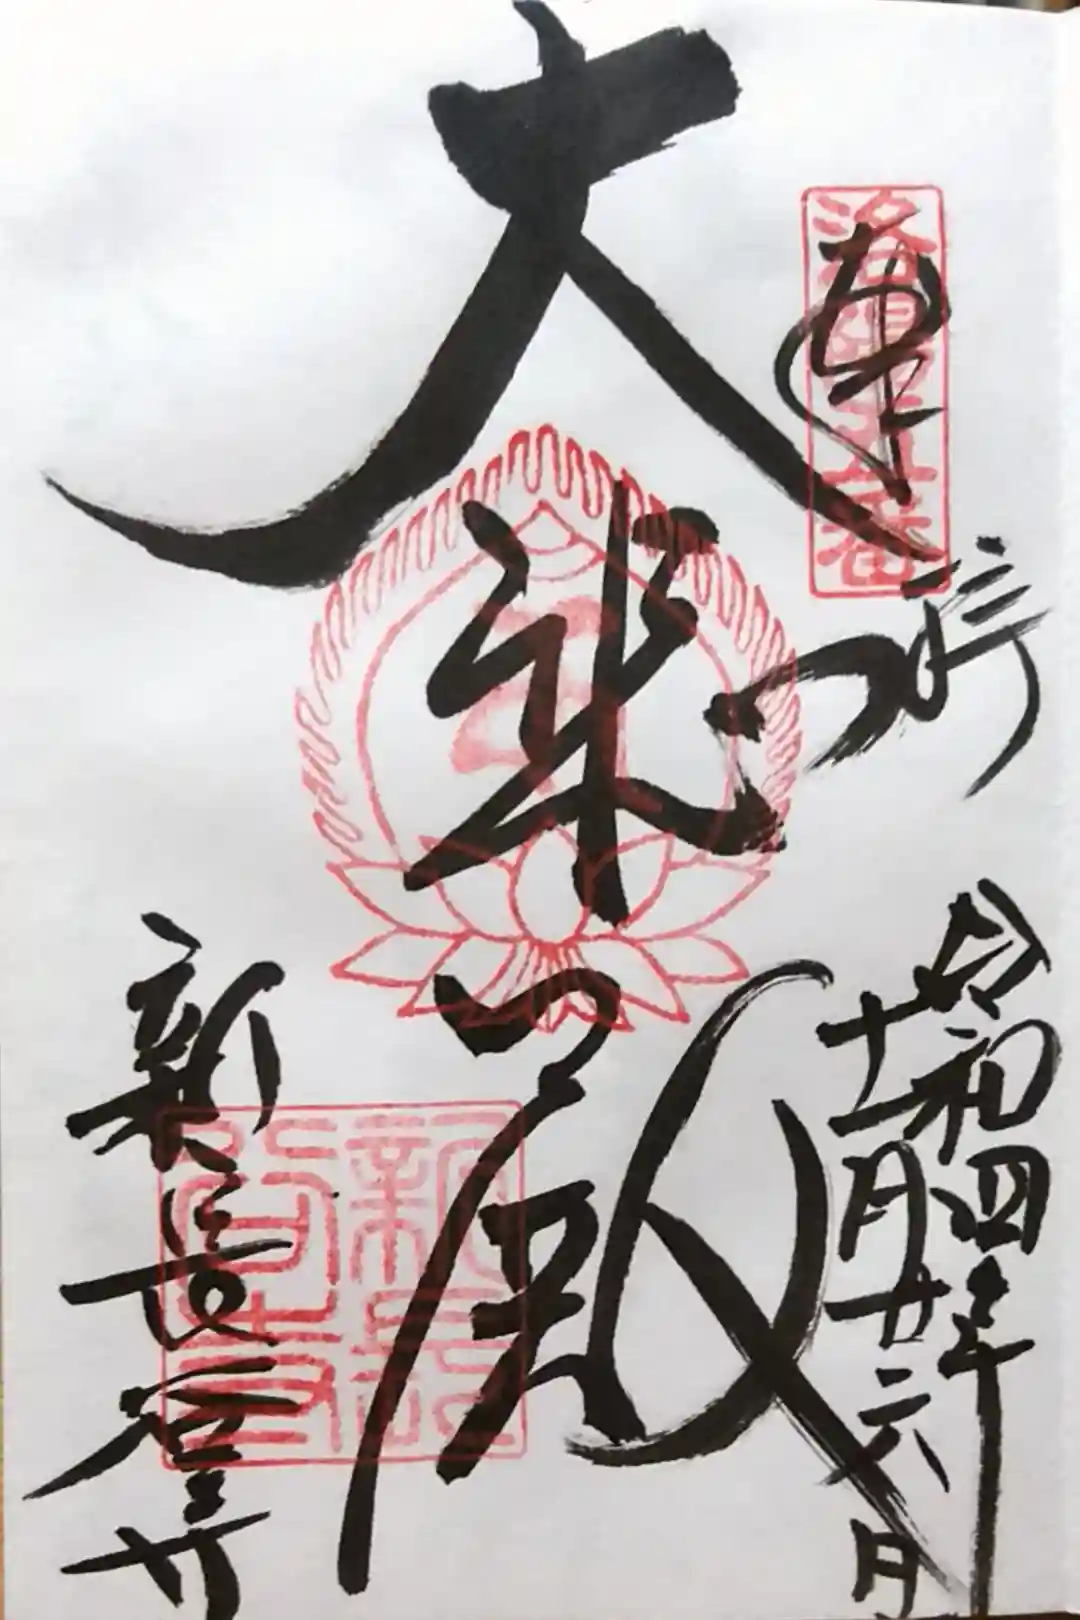 奉拝
洛陽第五番
令和四年
十一月廿六日
大悲殿
新長谷寺
新長谷寺